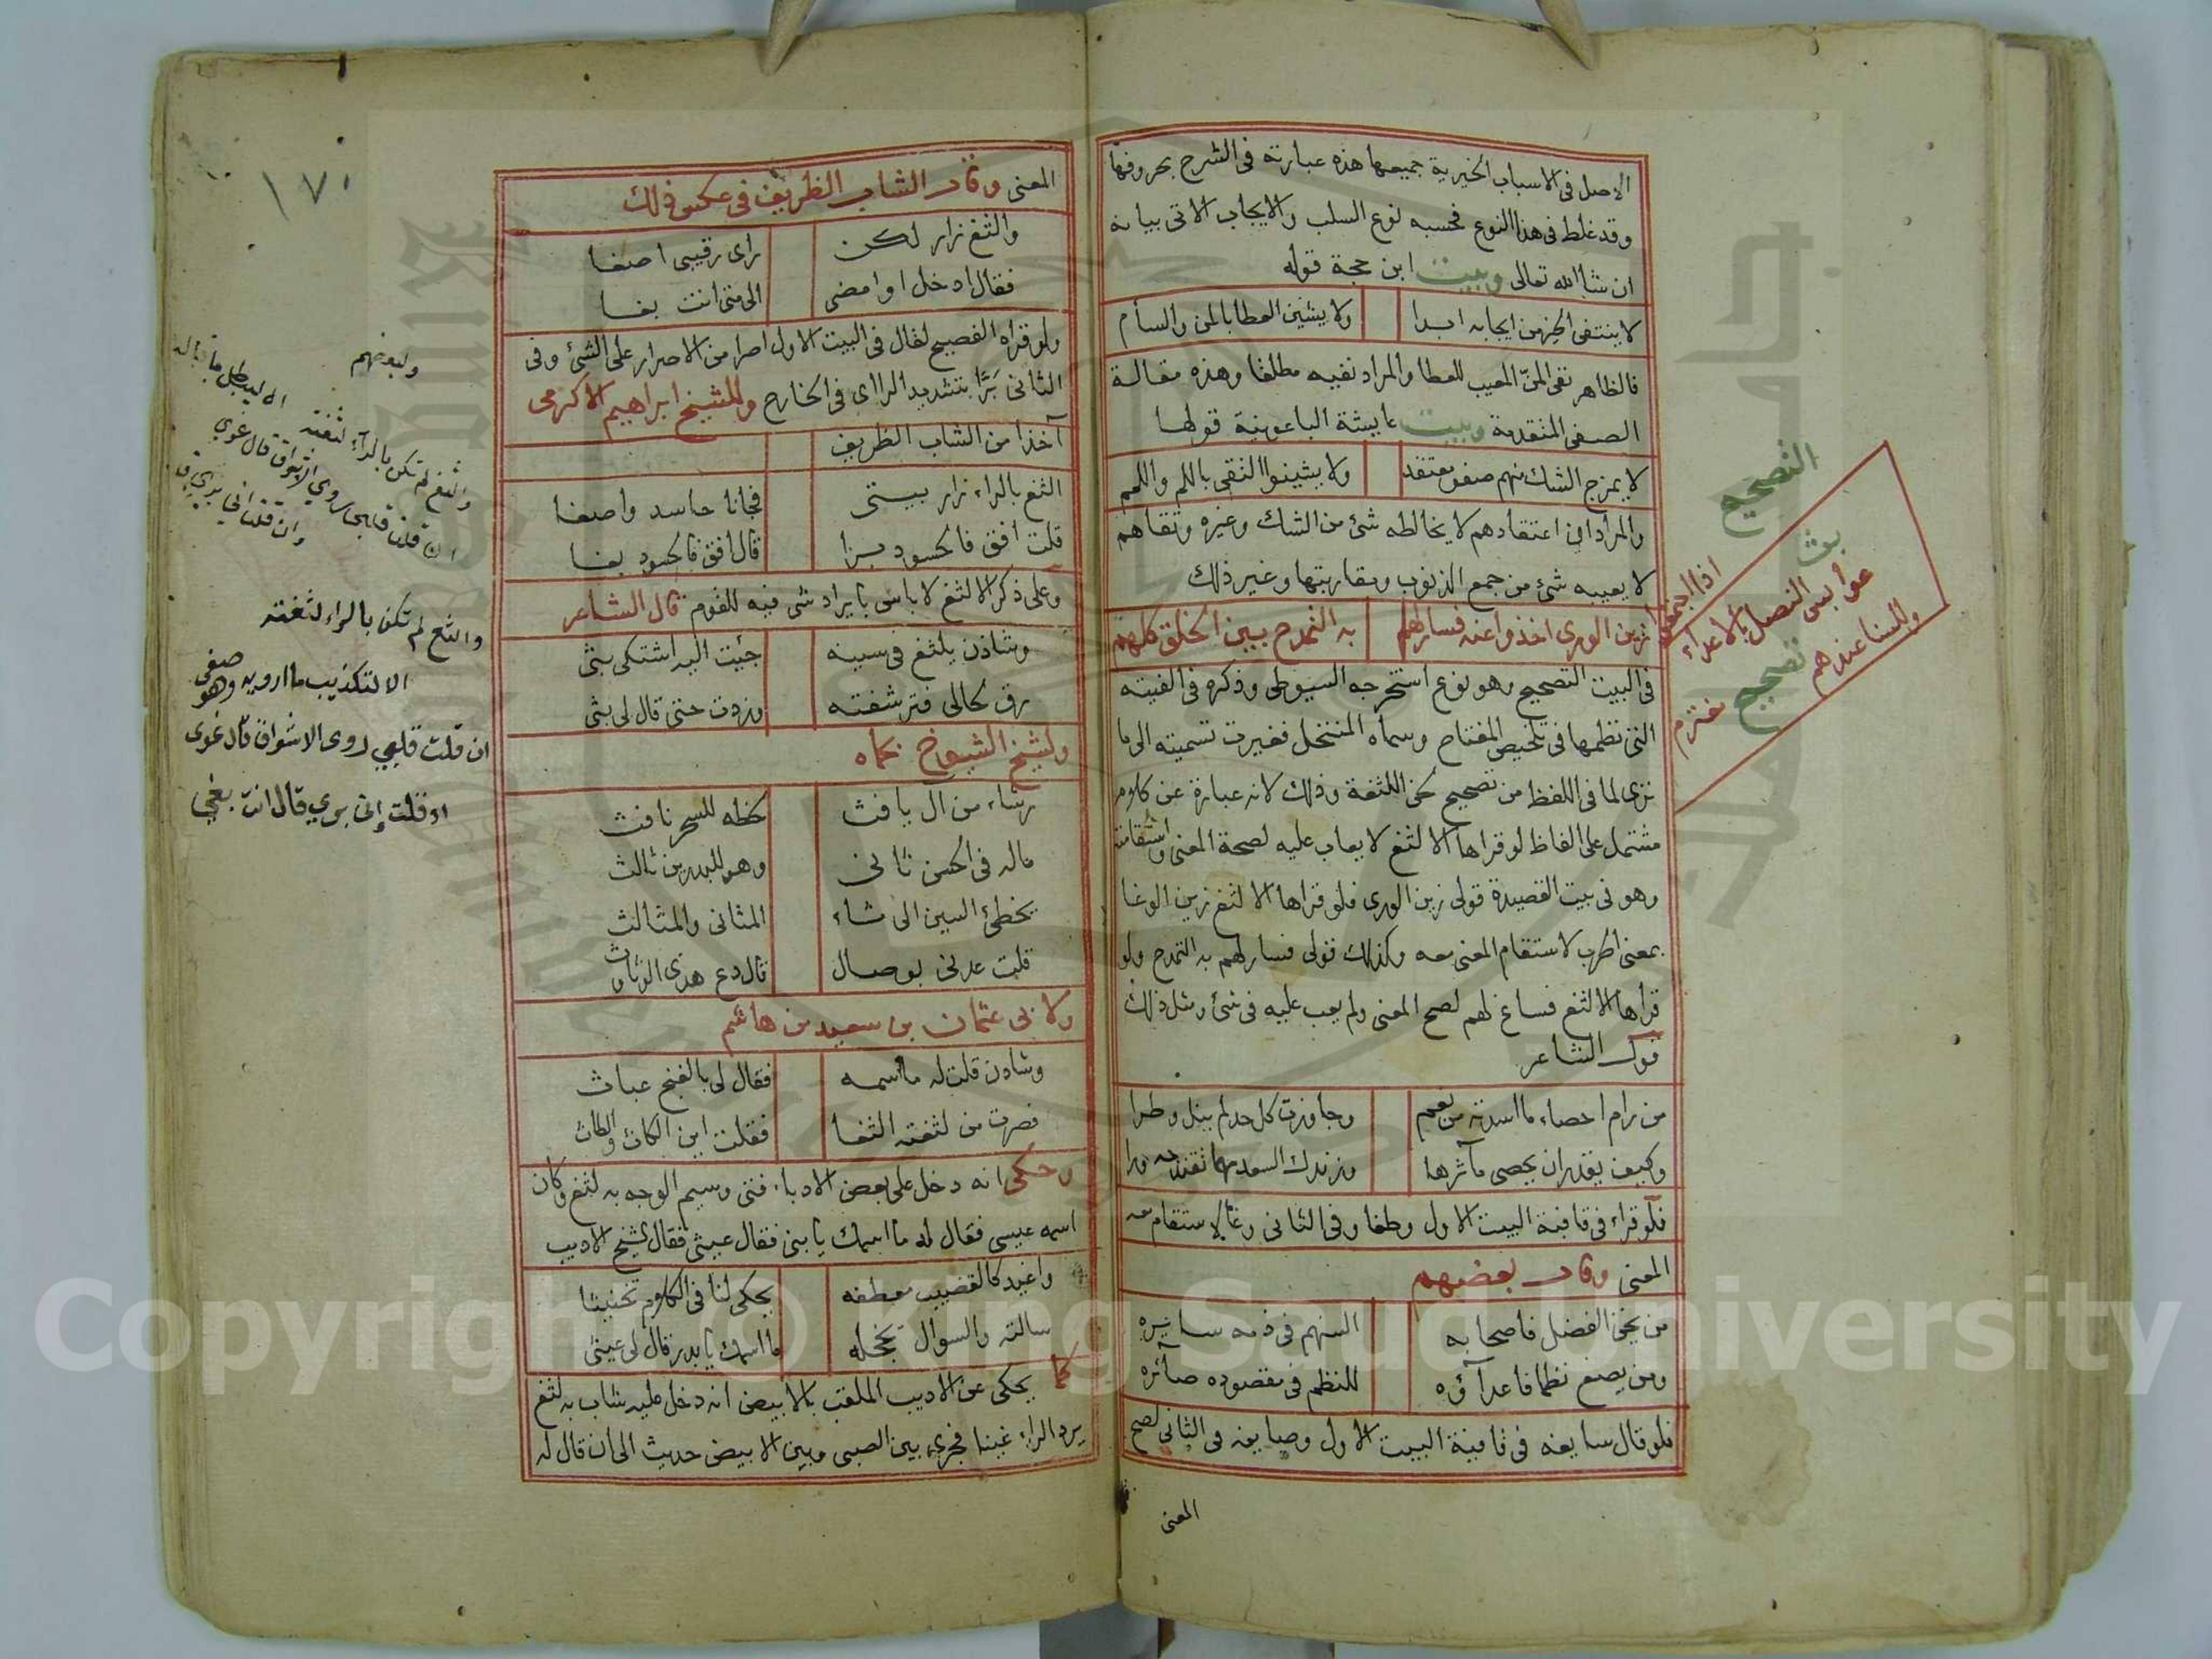 الاصل فى الاسباب الخيرية جميعها هذه عبارته فى الشرح بحروفها
وقد غلط فى هذا النوع فحسبه نوع السلب والايجاب الاتى بيانه
ان شا الله تعالى وبيت ابن حجة قوله
لا ينتفى الخير من ايجابه ابدا ولا يشين العطا بالمن والسأم
فالظاهر نفى المنّ المعيب للعطا والمراد نفيه مطلقا وهذه مقالة
الصفى المتقدمة وبيت عايشة الباعونية قولها
لا يمزج الشك منهم صفو معتقد ولا يشينوا التقى باللم واللمم
والمراد ان اعتقادهم لا يخالطه شئ من الشك وغيره وتقاهم
لا يعيبه شئ من جمع الذنوب ومقاربتها وغير ذلك
زين الورى اخذوا عنه فسار لهم به التمدح بين الخلق كلهم
فى البيت التصحيح وهو نوع استخرجه السيوطى وذكره فى الفيته
التى نظمها فى تلخيص المفتاح وسماه المنتحل فغيرت تسميته الى ما
ترى لما فى اللفظ من تصحيح حكى اللثغة وذلك لانه عبارة عن كلام
مشتمل على الفاظ لو قراها الالثغ لا يعاب عليه لصحة المعنى واستقامته
وهو فى بيت القصيدة قولى زين الورى فلو قراها الالثغ زين الوغا
بمعنى الحرب لاستقام المعنى معه وكذلك قولى فسار لهم به التمدح ولو
قراها الالثغ فساغ لهم لصح المعنى ولم يعب عليه فى شئ ومثل ذلك
قول الشاعر
من رام احصاء ما اسدته من نعم وجاوزت كل حد لم ينل وطرا
وكيف يقدر ان يحصى مآثرها وزندك السعد مهما تقتدحه ورا
فلو قراء فى قافية البيت الاول وطغا وفى الثانى وغا لاستقام معه
المعنى وقال بعضهم
من يخفى الفضل فاصحابه السنهم فى ذمه سائره
ومن يصغ نظما فاعدآؤه للنظم فى مقصوده صآئره
فلو قال سايغه فى قافية البيت الاول وصايغه فى الثانى لصح
المعنى
التصحيح
بث
اذا اجتمعوا
عوابس النصل بالاعداء
وللسنا عندهم
تصحيح
محترم
١٧٠
المعنى وقال الشاب الظريف فى عكس ذلك
والثغ زار لكن راى رقيبى اصغا
فقال ادخل او امضى الى متى انت بغا
ولو قراه الفصيح لقال فى البيت الاول اصرا من الاصرار على الشئ وفى
الثانى بَرّا بتشديد الرا اى فى الخارج وللشيخ ابراهيم الاكرمى
آخذا من الشاب الظريف
الثغ بالراء زار بيتى فجانا حاسد واصغا
قلت افق فالحسود برا قال افق فالحسود بغا
وعلى ذكر الالثغ لا باس بايراد شى فيه للقوم قال الشاعر
وشادن يلثغ فى سينه جئت اليه اشتكى بثى
رق لحالى فترشفته وزدت حتى قال لى بثى
ولشيخ الشيوخ بحماه
رشاء من ال يافث لحظه للسحر نافث
ماله فى الحسن ثانى وهو للبدرين ثالث
يخطئ السين الى ثاء المثانى والمثالث
قلت عدنى بوصال قال دع هذى الوثاوث
ولابى عثمان بن سعيد بن هاشم
وشادن قلت له ما اسمه فقال لى بالغنج عباث
فصرت من لثغته الثغا فقلت اين الكاث والطاث
وحكى انه دخل على بعض الادباء فتى وسيم الوجه به لثغ وكان
اسمه عيسى فقال له ما اسمك يا بنى فقال عيثى فقال الشيخ الاديب
واغيد كالقضيب معطفه يحكى لنا فى الكلام تخنيثا
سالته والسوال يخجله ما اسمك يا بدر قال لى عيثى
كما يحكى عن الاديب الملقب بالابيض انه دخل عليه شاب به لثغ
يرد الراء غينا فجرى بين الصبى وبين الابيض حديث الى ان قال له
ولبعضهم
والثغ لم تكن بالرآء لثغته
الا ليبطل ما
ان قلت
روي الاشواق قال غوي
والثغ لم تكن بالراء لثغته
الا لتكذيب ما ارويه وهو صغى
ان قلت قلبى روى الاشواق قال غوى
او قلت إنى بري قال انت بغى
Copyright © King Saud University